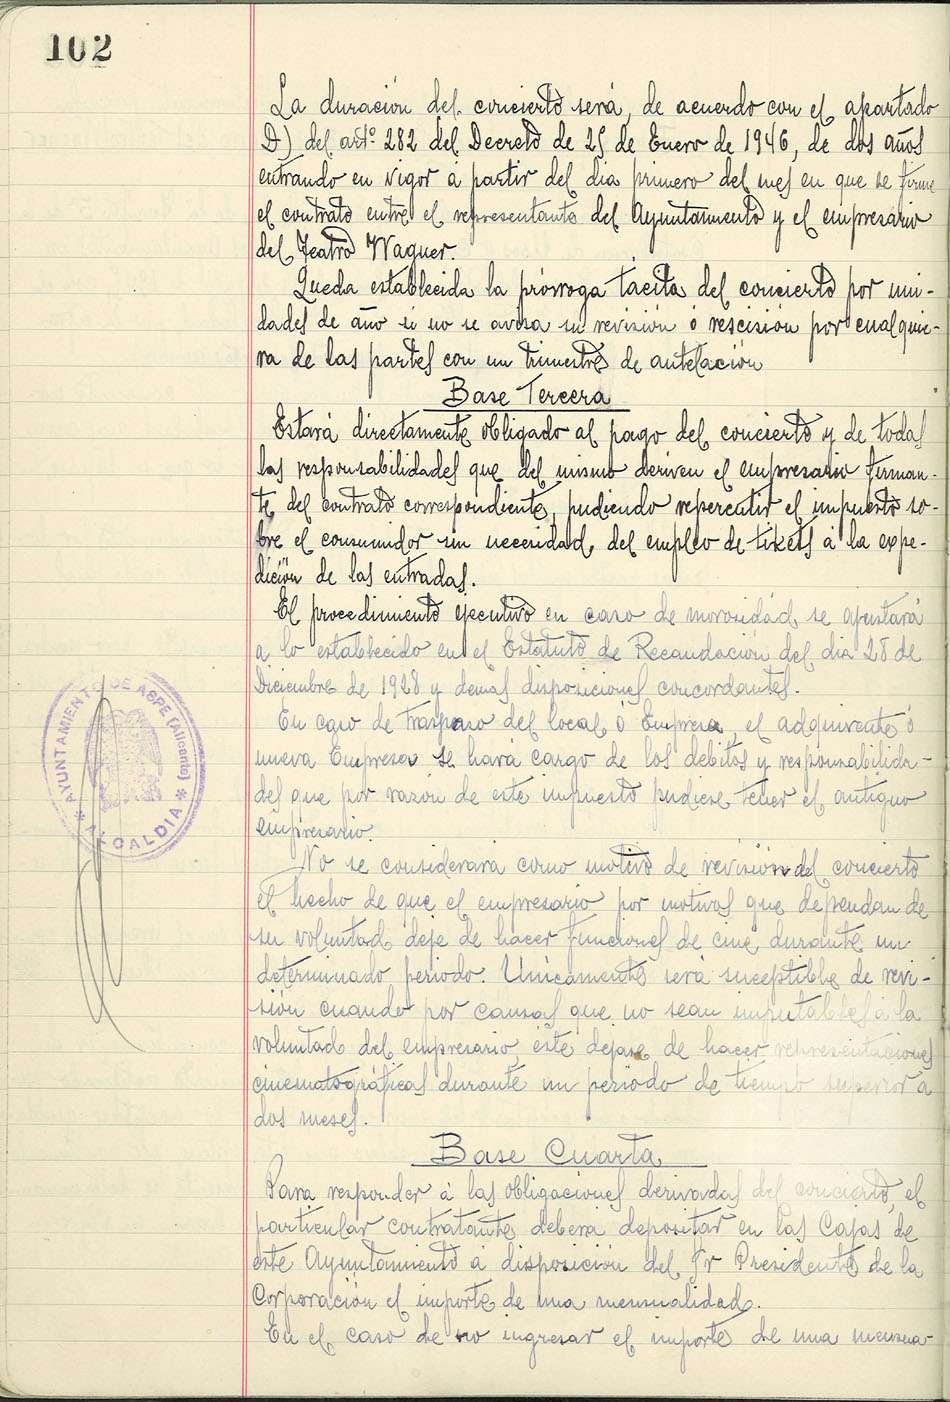 102
La duración del concierto será, de acuerdo con el apartado
D) del artº. 282 del Decreto de 25 de Enero de 1946, de dos años
entrando en vigor á partir del dia primero del mes en que se firme
el contrato entre el representante del Ayuntamiento y el empresario
del Teatro Wagner.
Queda establecida la prórroga tácita del concierto por uni-
dades de año si no se avisa su revisión ó rescisión por cualquie-
ra de las partes con un trimestre de antelación
Base Tercera
Estará directamente obligado al pago del concierto y de todas
las responsabilidades que del mismo deriven el empresario firman-
te del contrato correspondiente, pudiendo repercutir el impuesto so-
bre el consumidor sin necesidad, del empleo de tikets á la expe-
dición de las entradas.
El procedimiento ejecutivo en caso de morosidad, se ajustará
a lo establecido en el Estatuto de Recaudación del dia 28 de
Diciembre de 1928 y demas disposiciones concordantes.
En caso de traspaso del local ó Empresa, el adquirente ó
nueva Empresa se hará cargo de los debitos y responsabilida-
des que por razón de este impuesto pudiese tener el antiguo
empresario.
No se considerará como motivo de revisión del concierto
el hecho de que el empresario por motivos que dependan de
su voluntad deje de hacer funciones de cine, durante un
determinado periodo. Unicamente será suceptible de revi-
sión cuando por causas que no sean imputables á la
voluntad del empresario, éste dejase de hacer representaciones
cinematográficas durante un periodo de tiempo superior a
dos meses.
Base Cuarta
Para responder á las obligaciones derivadas del concierto, el
particular contratante deberá depositar en las Cajas de
este Ayuntamiento á disposición del Sr Presidente de la
Corporación el importe de una mensualidad.
En el caso de no ingresar el importe de una mensua-
AYUNTAMIENTO DE ASPE (Alicante)
* ALCALDIA *